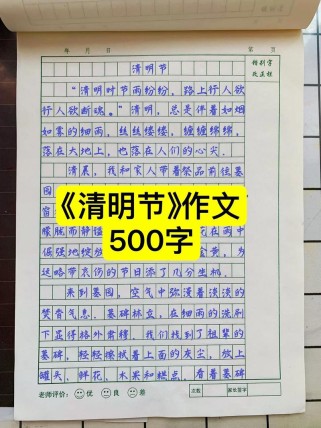 年 月 日 第 页
清明节
错别字
改正栏
“清明时节雨纷纷，路上行人欲
行人欲断魂。”清明，总是伴着如烟
如雾的细雨，丝丝缕缕，缠缠绵绵，
落在大地上，也落在人们的心尖。
清晨，我和家人带着祭品前往墓
园
《清明节》作文
窗
500字
朦胧而静谧 花在雨中
倔强地绽放 金黄，为
这略带哀伤的节日添了几分生机。
来到墓园，空气中弥漫着淡淡的
焚香气息。墓碑林立，在细雨的洗刷
下显得格外肃穆。我们找到了祖辈的
墓碑，轻轻擦拭着上面的灰尘，放上
罐头、鲜花、水果和糕点。看着墓碑
老师评价： 优 良 差 次数 家长签字